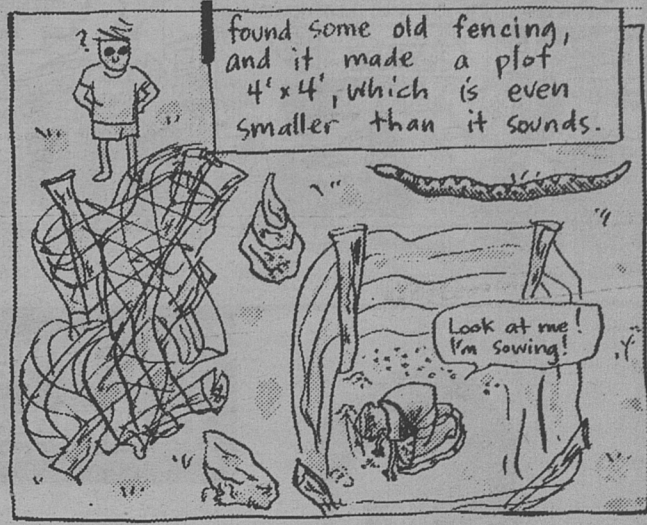 found some old fencing,
and it made a plot
4'x4', which is even
smaller than it sounds.
?
Look at me!
I'm sowing!